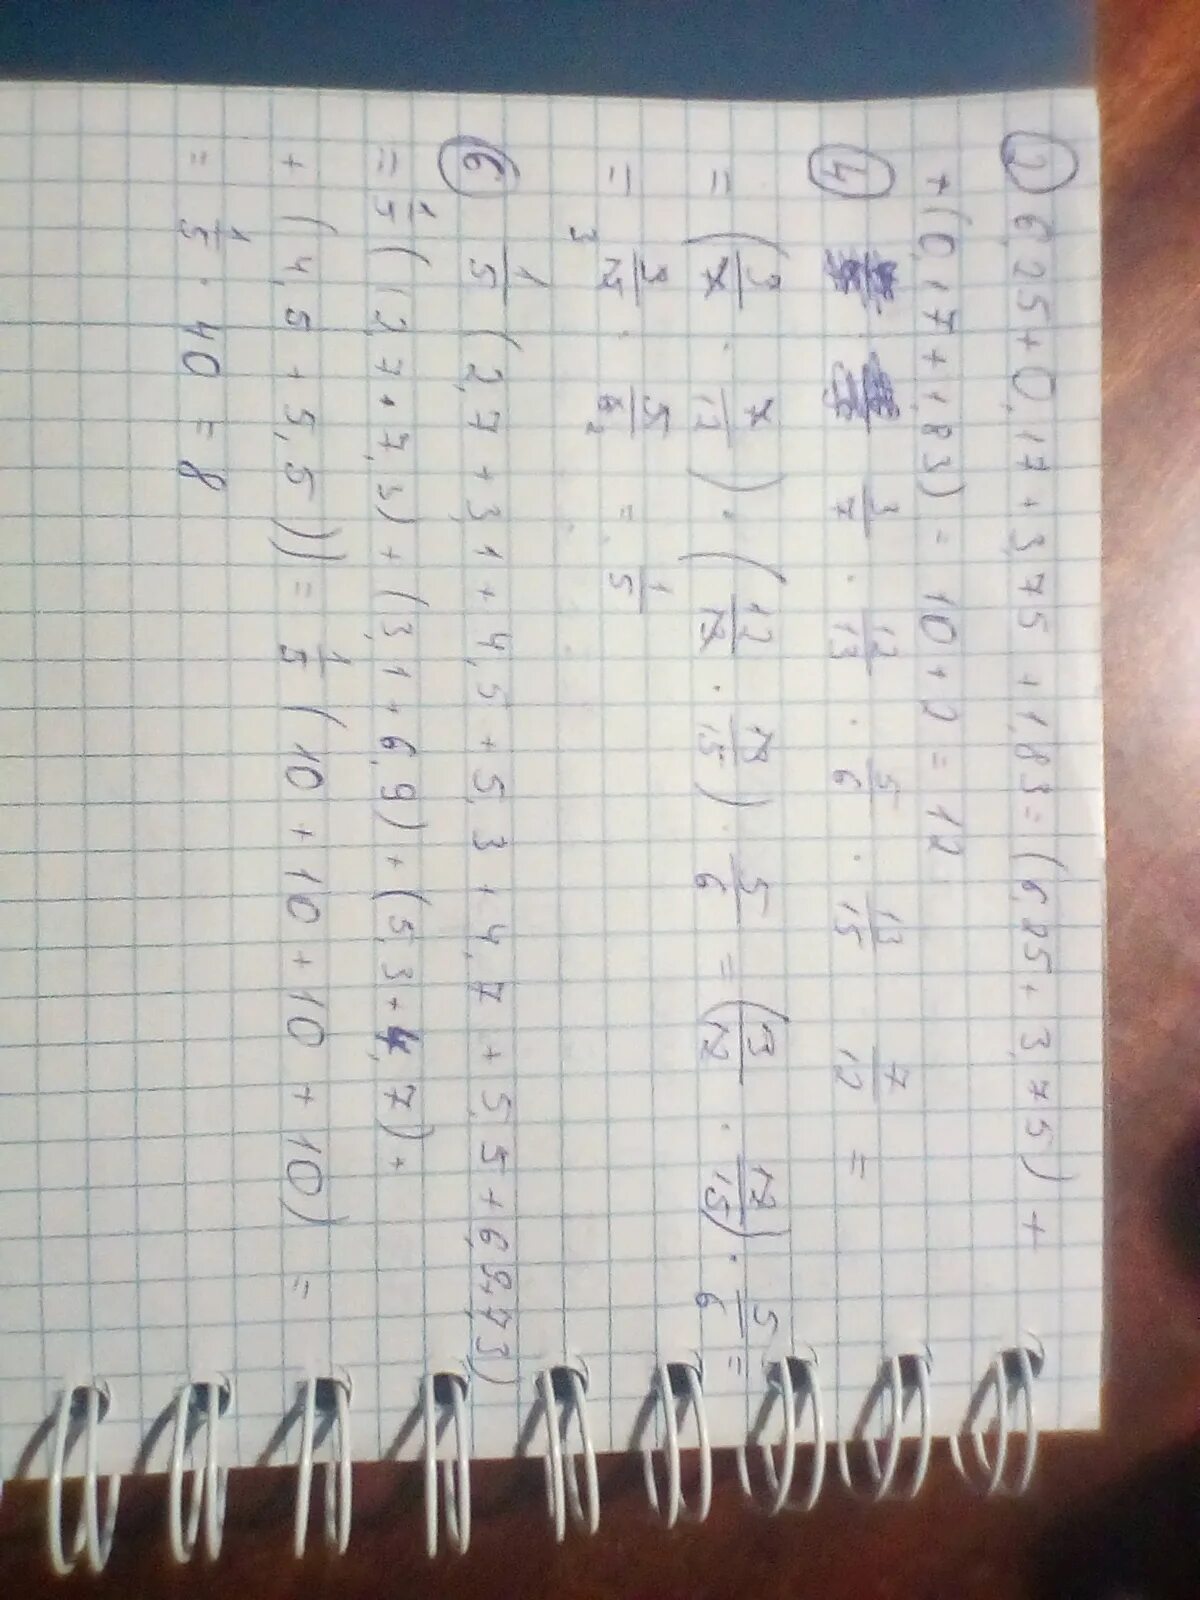 2 6,25+0,17+3,75+1,83=(6,25+3,75)+
+(0,17+1,83)=10+2=12
4 3/7 · 12/13 · 5/6 · 13/15 7/12 =
=(3/7 · 7/12) · (12/13 · 13/15) · 5/6 = (3/12 · 12/15) · 5/6 =
= 3/15 3 · 5/6 2 = 1/5
6 1/5 (2,7+3,1+4,5+5,3+4,7+5,5+6,9+7,3)
= 1/5 ((2,7+7,3)+(3,1+6,9)+(5,3+4,7)+
+(4,5+5,5))= 1/5 (10+10+10+10)=
= 1/5 · 40=8